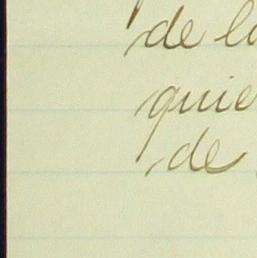 de
quie
de